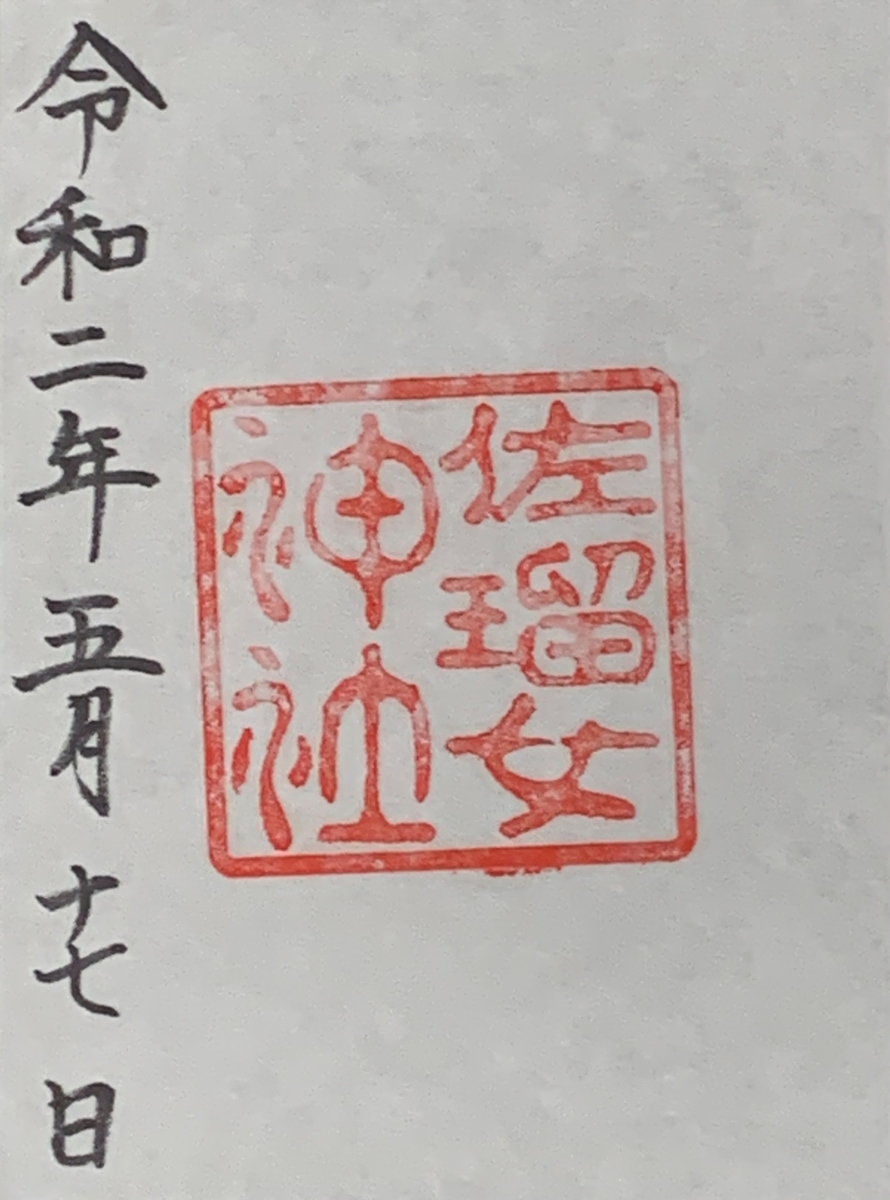 佐瑠女
神社
令和二年五月十七日